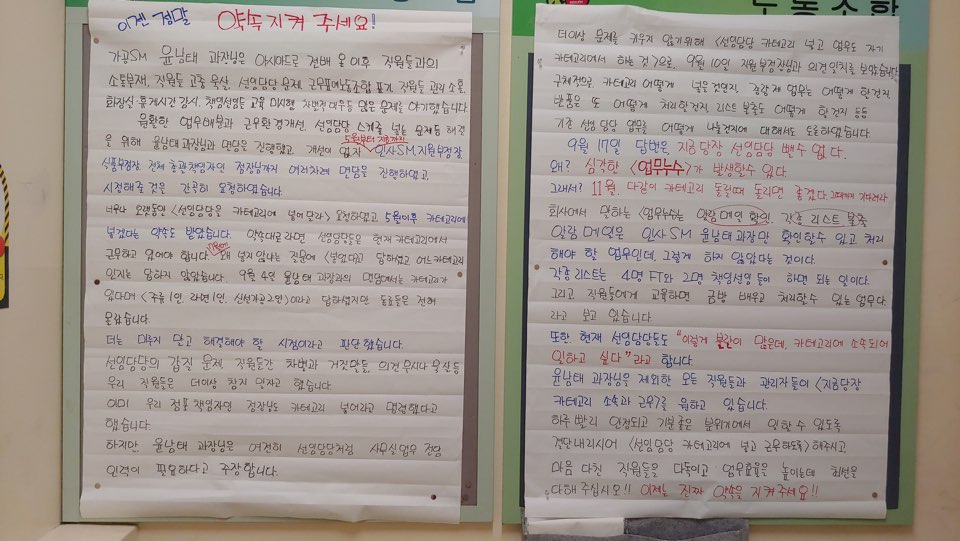 이젠 정말 약속 지켜 주세요!
가공SM 윤남태 과장님은 아시아드로 전배 온 이후 직원들과의
소통부재, 직원들 고충 묵살, 선임담당 문제, 근무표에 노동조합 표기, 직원들 관리 소홀,
화장실·휴게시간 감시, 책임선임들 교육 미시행, 차별적 대우 등 많은 문제를 야기했습니다.
원활한 업무배분과 근무환경개선, 선임담당 스케줄 넣는 문제등 해결
을 위해 윤남태 과장님과 면담을 진행했고, 개선이 없자 5월부터 지금까지 인사SM, 지원부점장,
식품부점장, 전체 총괄책임자인 점장님까지 여러차례 면담을 진행하였고,
시정해줄 것을 간곡히 요청하였습니다.
너무나 오랫동안 <선임담당은 카테고리에 넣어 달라> 요청하였고 5월이후 카테고리에
넣겠다는 약속도 받았습니다. 약속대로라면 선임담당들은 현재 카테고리에서
근무하고 있어야 합니다. 왜 넣지 않냐는 질문에 <넣었다>고 답하셨고 어느 카테고리
인지는 답하지 않았습니다. 9월 4일 윤남태 과장과의 면담에서는 카테고리가
있다며 <주류1인, 라면1인, 신선가공2인>이라고 답하셨지만 동료들은 전혀
몰랐습니다.
더는 미루지 말고 해결해야 할 시점이라고 판단했습니다.
선임담당의 갑질 문제, 직원들간 차별과 거짓말들, 의견 무시나 묵살등
우리 직원들은 더이상 참지 말자고 했습니다.
이미 우리 점포 책임자인 점장님도 카테고리 넣어라고 명령했다고
했습니다.
하지만, 윤남태 과장님은 여전히 선임담당처럼 사무실업무 전담
인력이 필요하다고 주장합니다.
노동조합
더이상 문제를 키우지 않기위해 <선임담당 카테고리 넣고 업무도 자기
카테고리에서 하는 것>으로, 9월 10일 지원부점장님과 의견일치를 보았습니다.
구체적으로, 카테고리 어떻게 넣을 것인지, 점검제 업무는 어떻게 할건지,
반품은 또 어떻게 처리할건지, 리스트 불출도 어떻게 할건지 등등
기존 선임담당 업무를 어떻게 나눌건지에 대해서도 논의하였습니다.
9월 17일 답변은 지금당장 선임담당 뺄수 없다.
왜? 심각한 <업무누수>가 발생할수 있다.
그래서? 11월, 다같이 카테고리 돌릴때 돌리면 좋겠다. 그때까지 기다려라
회사에서 말하는 <업무누수>는 알람메인 확인, 각종 리스트 불출
알람메인은 인사SM 윤남태 과장만 확인할수 있고 처리
해야 할 업무인데, 그렇게 하지 않았다는 것이다.
각종 리스트는 4명 FT와 2명 책임선임들이 하면 되는 일이다.
그리고 직원들에게 교육하면 금방 배우고 처리할수 있는 업무다.
라고 보고 있습니다.
또한, 현재 선임담당들도 "이렇게 불만이 많은데, 카테고리에 소속되어
일하고 싶다"라고 합니다.
윤남태 과장님을 제외한 모든 직원들과 관리자들이 <지금당장
카테고리 소속과 근무>를 원하고 있습니다.
하루 빨리 안정되고 기분좋은 분위기에서 일할수 있도록
결단내리시어 <선임담당 카테고리에 넣고 근무하도록> 해주시고
마음 다친 직원들을 다독이고 업무효율을 높이는데 최선을
다해 주십시오!! 이제는 진짜 약속을 지켜주세요!!